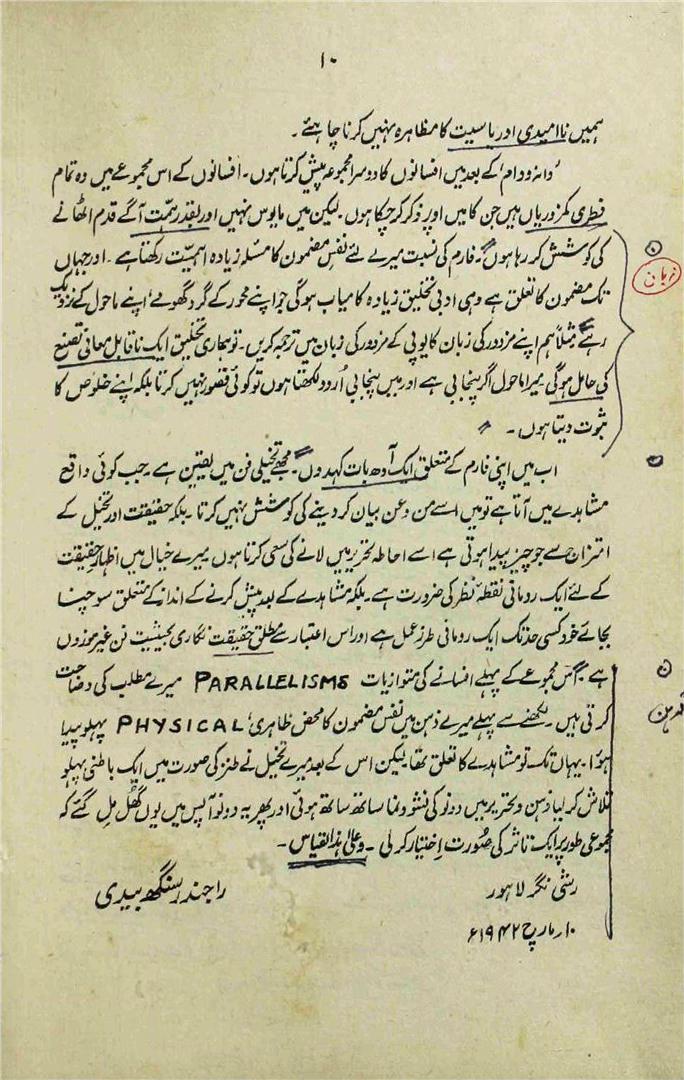 ۱۰
ہمیں ناامیدی اور یاسیت کا مظاہرہ نہیں کرنا چاہئے۔
’دانہ و دام‘ کے بعد میں افسانوں کا دوسرا مجموعہ پیش کرتا ہوں۔ افسانوں کے اس مجموعے میں وہ تمام
فطری کمزوریاں ہیں جن کا میں اوپر ذکر کر چکا ہوں۔ لیکن میں مایوس نہیں اور بقدر ہمت آگے قدم اٹھانے
کی کوشش کر رہا ہوں۔ فارم کی نسبت میرے لئے نفس مضمون کا مسئلہ زیادہ اہمیت رکھتا ہے۔ اور جہاں
تک مضمون کا تعلق ہے وہی ادبی تخلیق زیادہ کامیاب ہوگی جو اپنے محور کے گرد گھومے، اپنے ماحول کے نزدیک
رہے۔ مثلاً ہم اپنے مزدور کی زبان کا یوپی کے مزدور کی زبان میں ترجمہ کریں۔ تو ہماری تخلیق ایک ناقابل معافی تصنع
کی حامل ہوگی۔ میرا ماحول اگر پنجابی ہے اور میں پنجابی اُردو لکھتا ہوں تو کوئی قصور نہیں کرتا بلکہ اپنے خلوص کا
ثبوت دیتا ہوں۔
زبان
اب میں اپنی فارم کے متعلق ایک آدھ بات کہہ دوں۔ مجھے تخیلی فن میں یقین ہے۔ جب کوئی واقع
مشاہدے میں آتا ہے تو میں اسے من و عن بیان کر دینے کی کوشش نہیں کرتا۔ بلکہ حقیقت اور تخیل کے
امتزاج سے جو چیز پیدا ہوتی ہے اسے احاطہ تحریر میں لانے کی سعی کرتا ہوں۔ میرے خیال میں اظہار حقیقت
کے لئے ایک رومانی نقطہ نظر کی ضرورت ہے۔ بلکہ مشاہدے کے بعد پیش کرنے کے انداز کے متعلق سوچنا
بجائے خود کسی حد تک ایک رومانی طرز عمل ہے اور اس اعتبار سے مطلق حقیقت نگاری بحیثیت فن غیر موزوں
ہے۔ اس مجموعے کے پہلے افسانے کی متوازیات PARALLELISMS میرے مطلب کی وضاحت
کرتی ہیں۔ لکھنے سے پہلے میرے ذہن میں نفس مضمون کا محض ظاہری، PHYSICAL پہلو پیدا
ہؤا۔ یہاں تک تو مشاہدے کا تعلق تھا لیکن اس کے بعد میرے تخیل نے طنز کی صورت میں ایک باطنی پہلو
تلاش کر لیا ذہن و تحریر میں دونو کی نشو و نما ساتھ ساتھ ہوئی اور پھر یہ دونو آپس میں یوں گھل مل گئے کہ
مجموعی طور پر ایک تاثر کی صُورت اختیار کر لی۔ وعلیٰ ہذا القیاس۔
رشی نگر لاہور
راجندر سنگھ بیدی
۱۰ر مارچ ۱۹۴۲ء